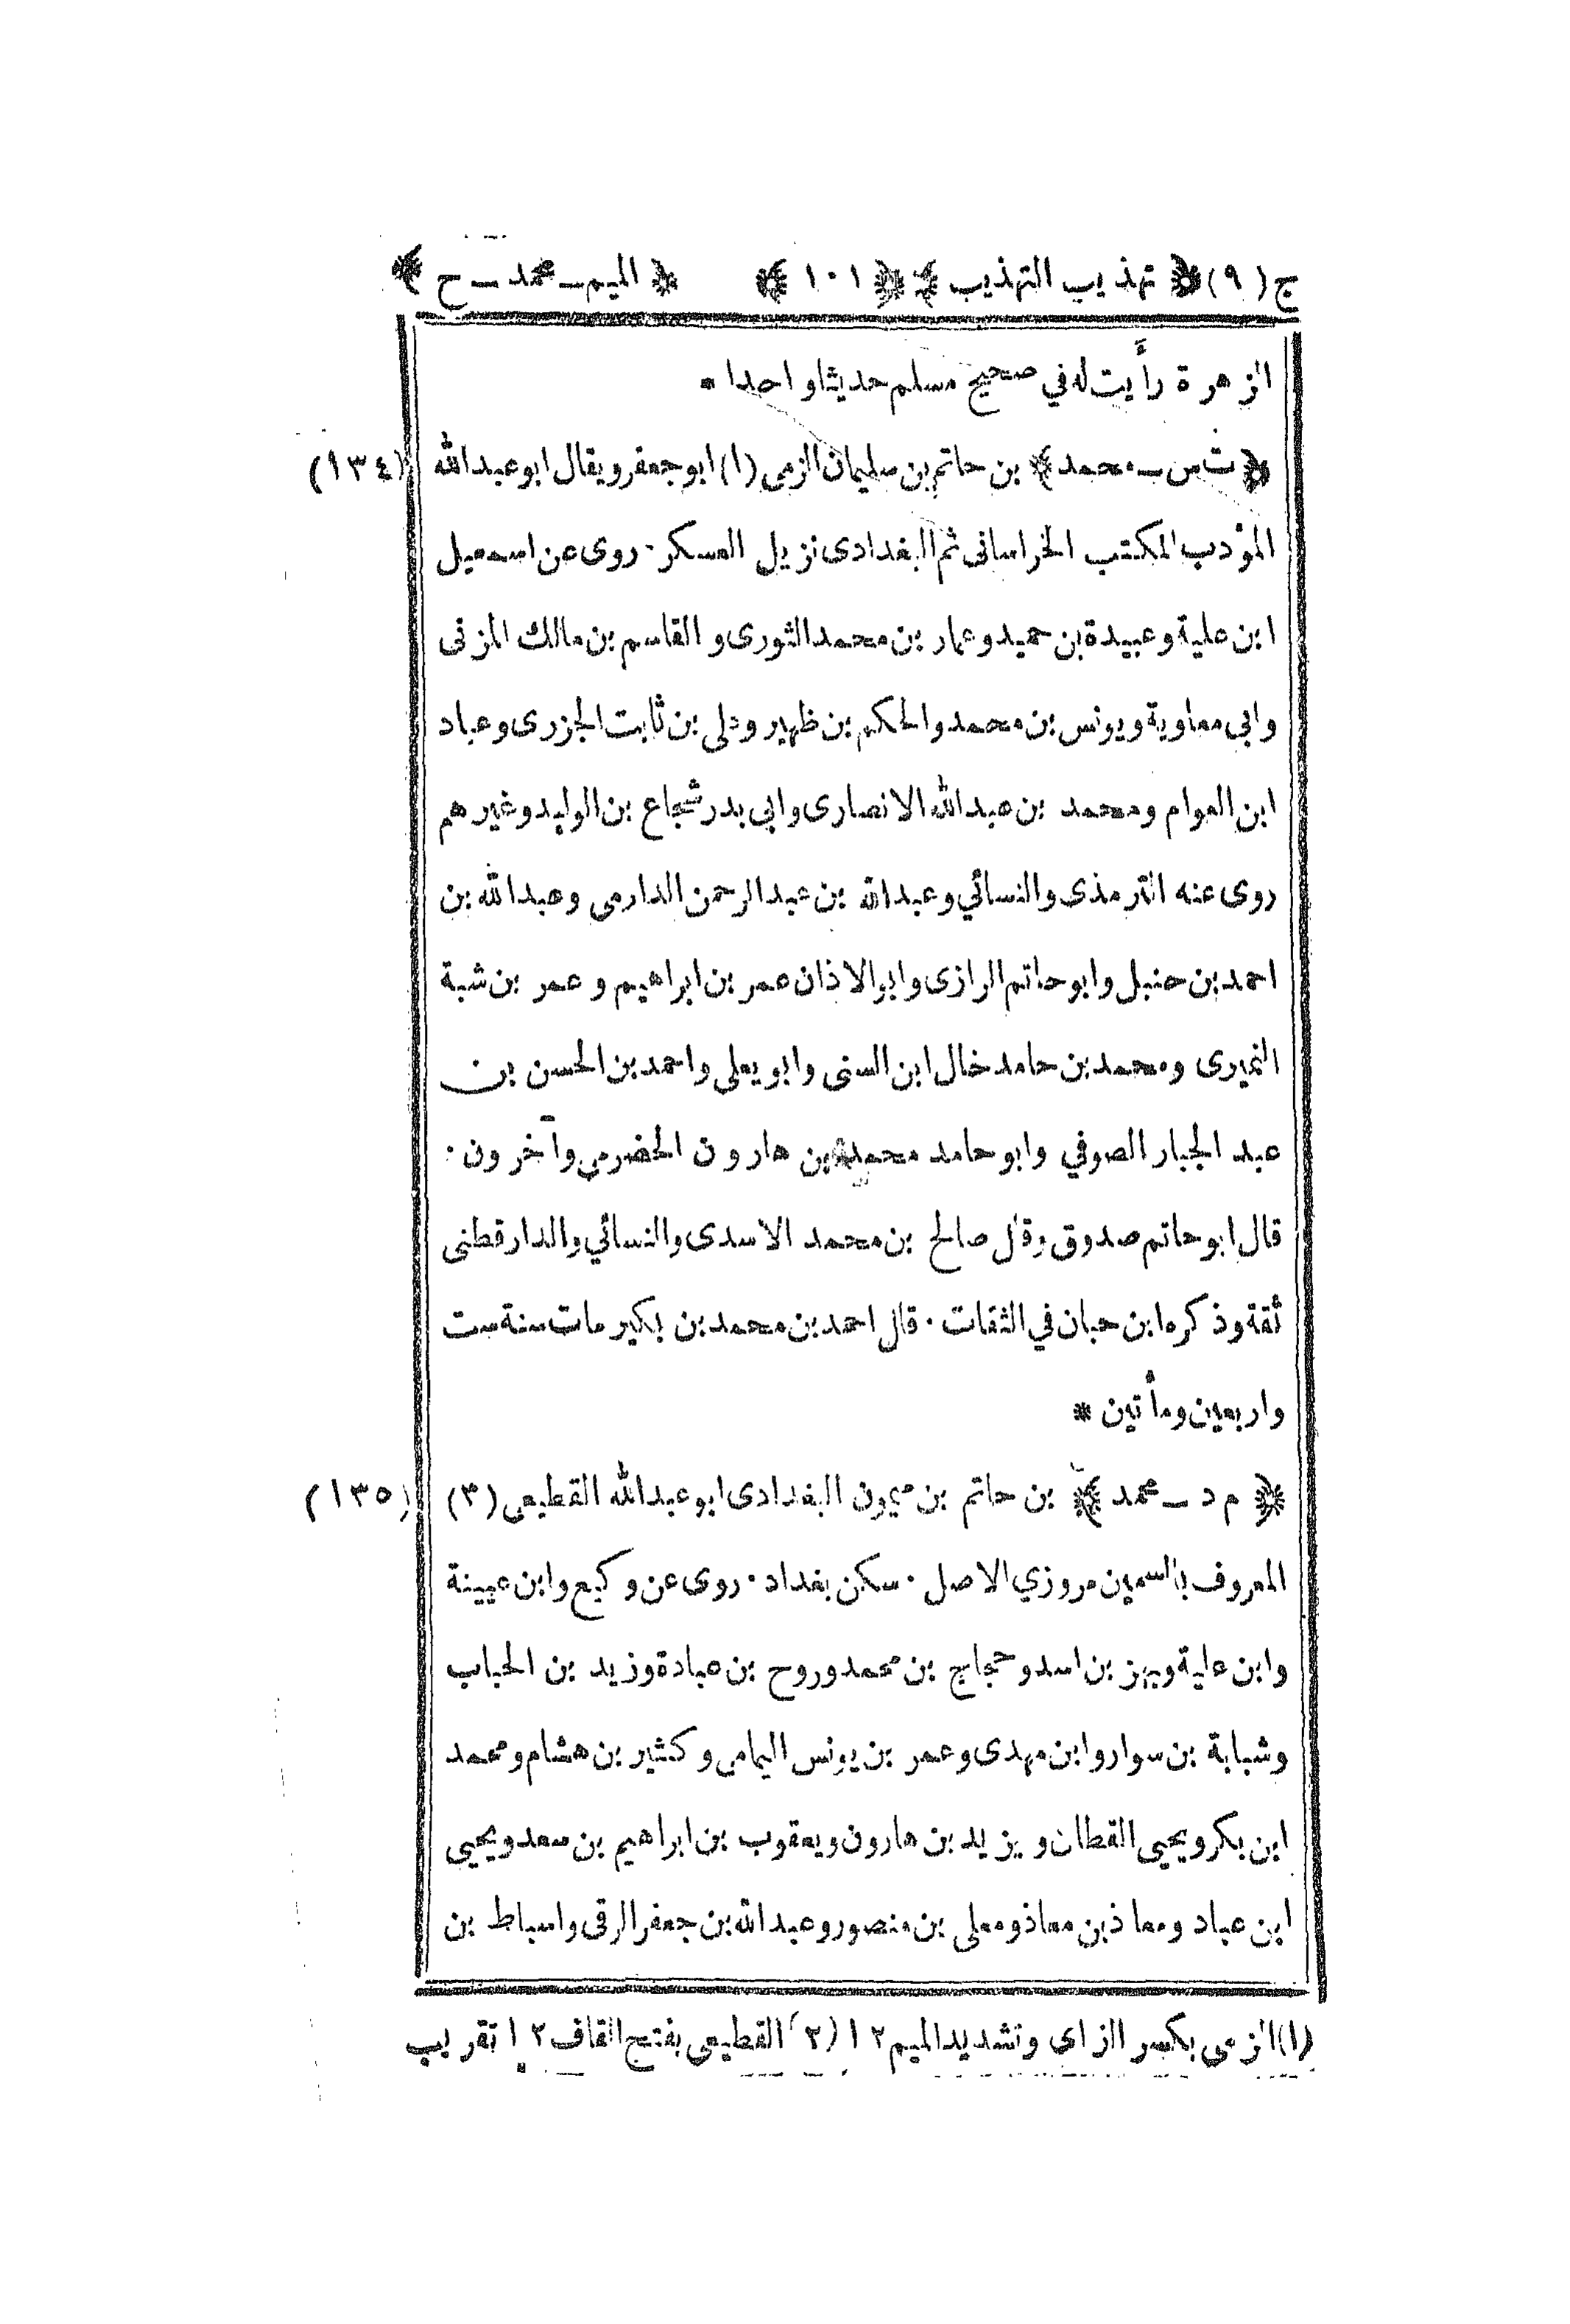 ج (٩) ﴿ تهذيب التهذيب ﴾ ﴿ ١٠١ ﴾ ﴿ الميم ـ محمد ـ ح ﴾
الزهرة رأيت له في صحيح مسلم حديثا واحدا *
(١٣٤) ﴿ ت س ـ محمد ﴾ بن حاتم بن سليمان الزمى (١) ابو جعفر ويقال ابو عبد الله
المؤدب المكتب الخراسانى ثم البغدادى نزيل العسكر ٠ روى عن اسمعيل
ابن علية وعبيدة بن حميد وعمار بن محمد الثورى والقاسم بن مالك المزنى
وابي معاوية ويونس بن محمد والحكم بن ظهير وعلى بن ثابت الجزرى وعباد
ابن العوام ومحمد بن عبد الله الانصارى وابى بدر شجاع بن الوليد وغيرهم
روى عنه الترمذى والنسائي وعبد الله بن عبد الرحمن الدارمى وعبد الله بن
احمد بن حنبل وابو حاتم الرازى وابو الاذان عمر بن ابراهيم وعمر بن شبة
النميرى ومحمد بن حامد خال ابن السنى وابو يعلى واحمد بن الحسن بن
عبد الجبار الصوفي وابو حامد محمد بن هارون الحضرمى وآخرون ٠
قال ابو حاتم صدوق وقال صالح بن محمد الاسدى والنسائي والدارقطنى
ثقة وذكره ابن حبان في الثقات ٠ قال احمد بن محمد بن بكير مات سنة ست
واربعين ومأتين *
(١٣٥) ﴿ م د ـ محمد ﴾ بن حاتم بن ميمون البغدادى ابو عبد الله القطيعى (٢)
المعروف بالسمين مروزي الاصل ٠ سكن بغداد ٠ روى عن وكيع وابن عيينة
وابن علية وبهز بن اسد وحجاج بن محمد وروح بن عبادة وزيد بن الحباب
وشبابة بن سوار وابن مهدى وعمر بن يونس اليمامى وكثير بن هشام ومحمد
ابن بكر ويحيى القطان ويزيد بن هارون ويعقوب بن ابراهيم بن سعد ويحيى
ابن عباد ومعاذ بن معاذ ومعلى بن منصور وعبد الله بن جعفر الرقى واسباط بن
(١) الزمى بكسر الزاى وتشديد الميم ١٢ (٢) القطيعى بفتح القاف ١٢ تقريب